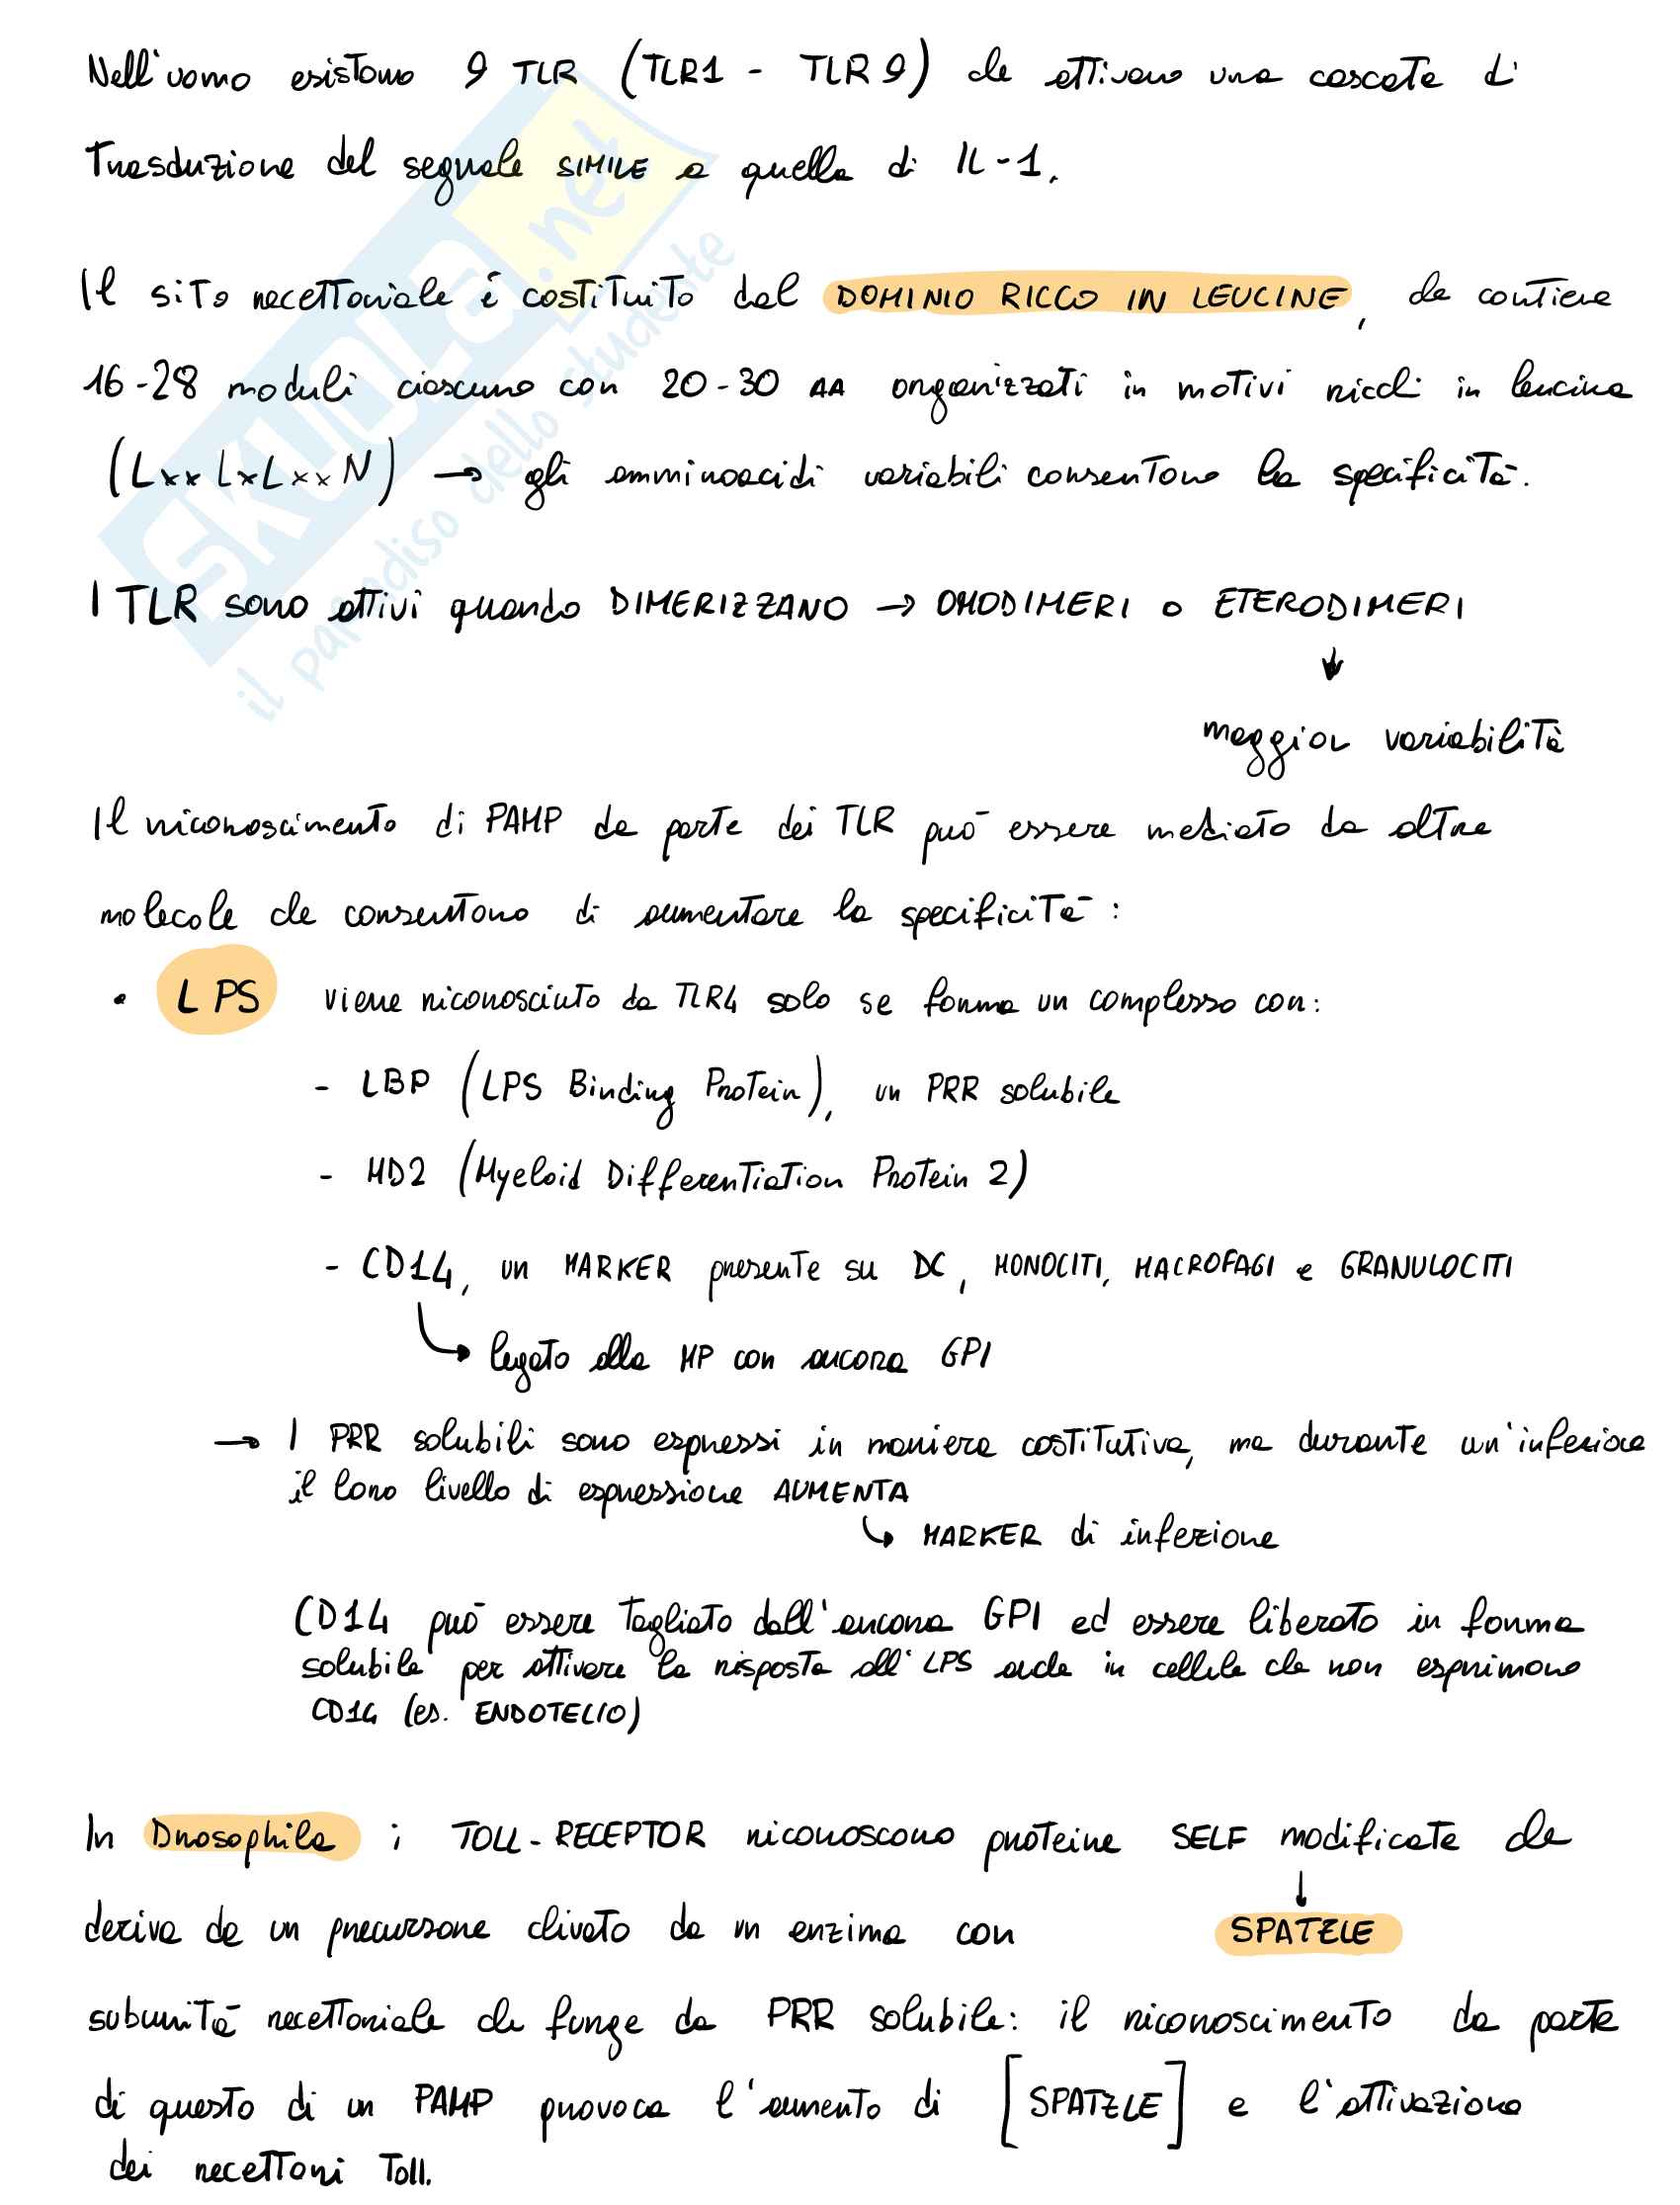 Nell'uomo esistono 9 TLR (TLR1 - TLR9) che attivano una cascata di
trasduzione del segnale SIMILE a quella di IL-1.
Il sito recettoriale è costituito dal DOMINIO RICCO IN LEUCINE, che contiene
16-28 moduli ciascuno con 20-30 AA organizzati in motivi ricchi in leucina
(LxxLxLxxN) → gli amminoacidi variabili consentono la specificità.
I TLR sono attivi quando DIMERIZZANO → OMODIMERI o ETERODIMERI
↓
maggior variabilità
Il riconoscimento di PAMP da parte dei TLR può essere mediato da altre
molecole che consentono di aumentare la specificità:
• LPS viene riconosciuto da TLR4 solo se forma un complesso con:
- LBP (LPS Binding Protein), un PRR solubile
- MD2 (Myeloid Differentiation Protein 2)
- CD14, un MARKER presente su DC, MONOCITI, MACROFAGI e GRANULOCITI
↳ legato alla MP con ancora GPI
→ I PRR solubili sono espressi in maniera costitutiva, ma durante un'infezione
il loro livello di espressione AUMENTA
↳ MARKER di infezione
CD14 può essere tagliato dall'ancora GPI ed essere liberato in forma
solubile per attivare la risposta all'LPS anche in cellule che non esprimono
CD14 (es. ENDOTELIO)
In Drosophila i TOLL-RECEPTOR riconoscono proteine SELF modificate che
↓
deriva da un precursore clivato da un enzima con SPATZLE
subunità recettoriale che funge da PRR solubile: il riconoscimento da parte
di questo di un PAMP provoca l'aumento di [SPATZLE] e l'attivazione
dei recettori Toll.
SKUOLA.net
il paradiso dello studente